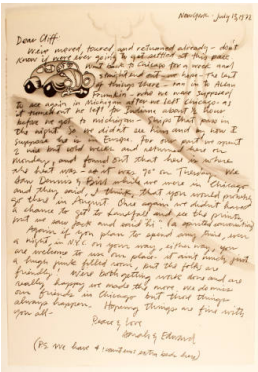 New York July 13, 1972
Dear Cliff
We've moved, toured and returned already - don't
know if we're ever going to get settled at this pace
went back to Chicago for a week and
straightened out - we have the last
of things there - ran in to Glenn
Frumkin - who we were supposed
to see again in Michigan after we left Chicago - as
it turned out he left for Indiana about 1 hour
before we got to Michigan - Ships that pass in
the night. So we didn't see him and by now I
suppose he is in Europe. For our part we spent
a nice but cold week end
monday, and found out that here is where
the heat was - it was 90° on Tuesday. We
saw Dennis & Paul while we were in Chicago
and they said, I think, that you would probably
get there in August. Once again we didn't have
a chance to get to Landfall and see the prints
but we saw Jack and said hi - (a minutes conversation)
Again if you plan to spend any time, even
a night, in N.Y.C. on your way, either way, you
are welcome to use our place it aint much, just
a huge junk filled room, but the folks are
friendly. We're both getting work done and are
really happy we made the move. We do miss
our friends in Chicago but these things
always happen. Hoping things are fine with
you all -
Peace & Love
& Edward
(P.S. We have extra beds here)